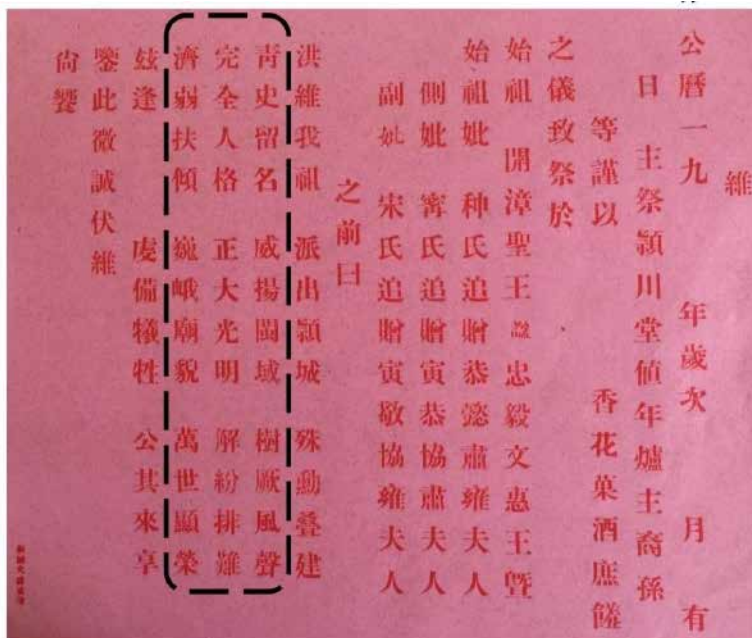 維
公曆一九 年歲次 月 有
日 主祭潁川堂值年爐主裔孫
等謹以 香花菓酒庶饈
之儀致祭於
始祖 開漳聖王諡忠毅文惠王暨
始祖妣 种氏追贈恭懿肅雍夫人
側妣 甯氏追贈寅恭協肅夫人
副妣 宋氏追贈寅敬協雍夫人
之前曰
洪維我祖 派出潁城 殊勳疊建
青史留名 威揚閩域 樹厥風聲
完全人格 正大光明 解紛排難
濟弱扶傾 巍峨廟貌 萬世顯榮
玆逢 虔備犧牲 公其來享
鑒此微誠伏維
尙饗